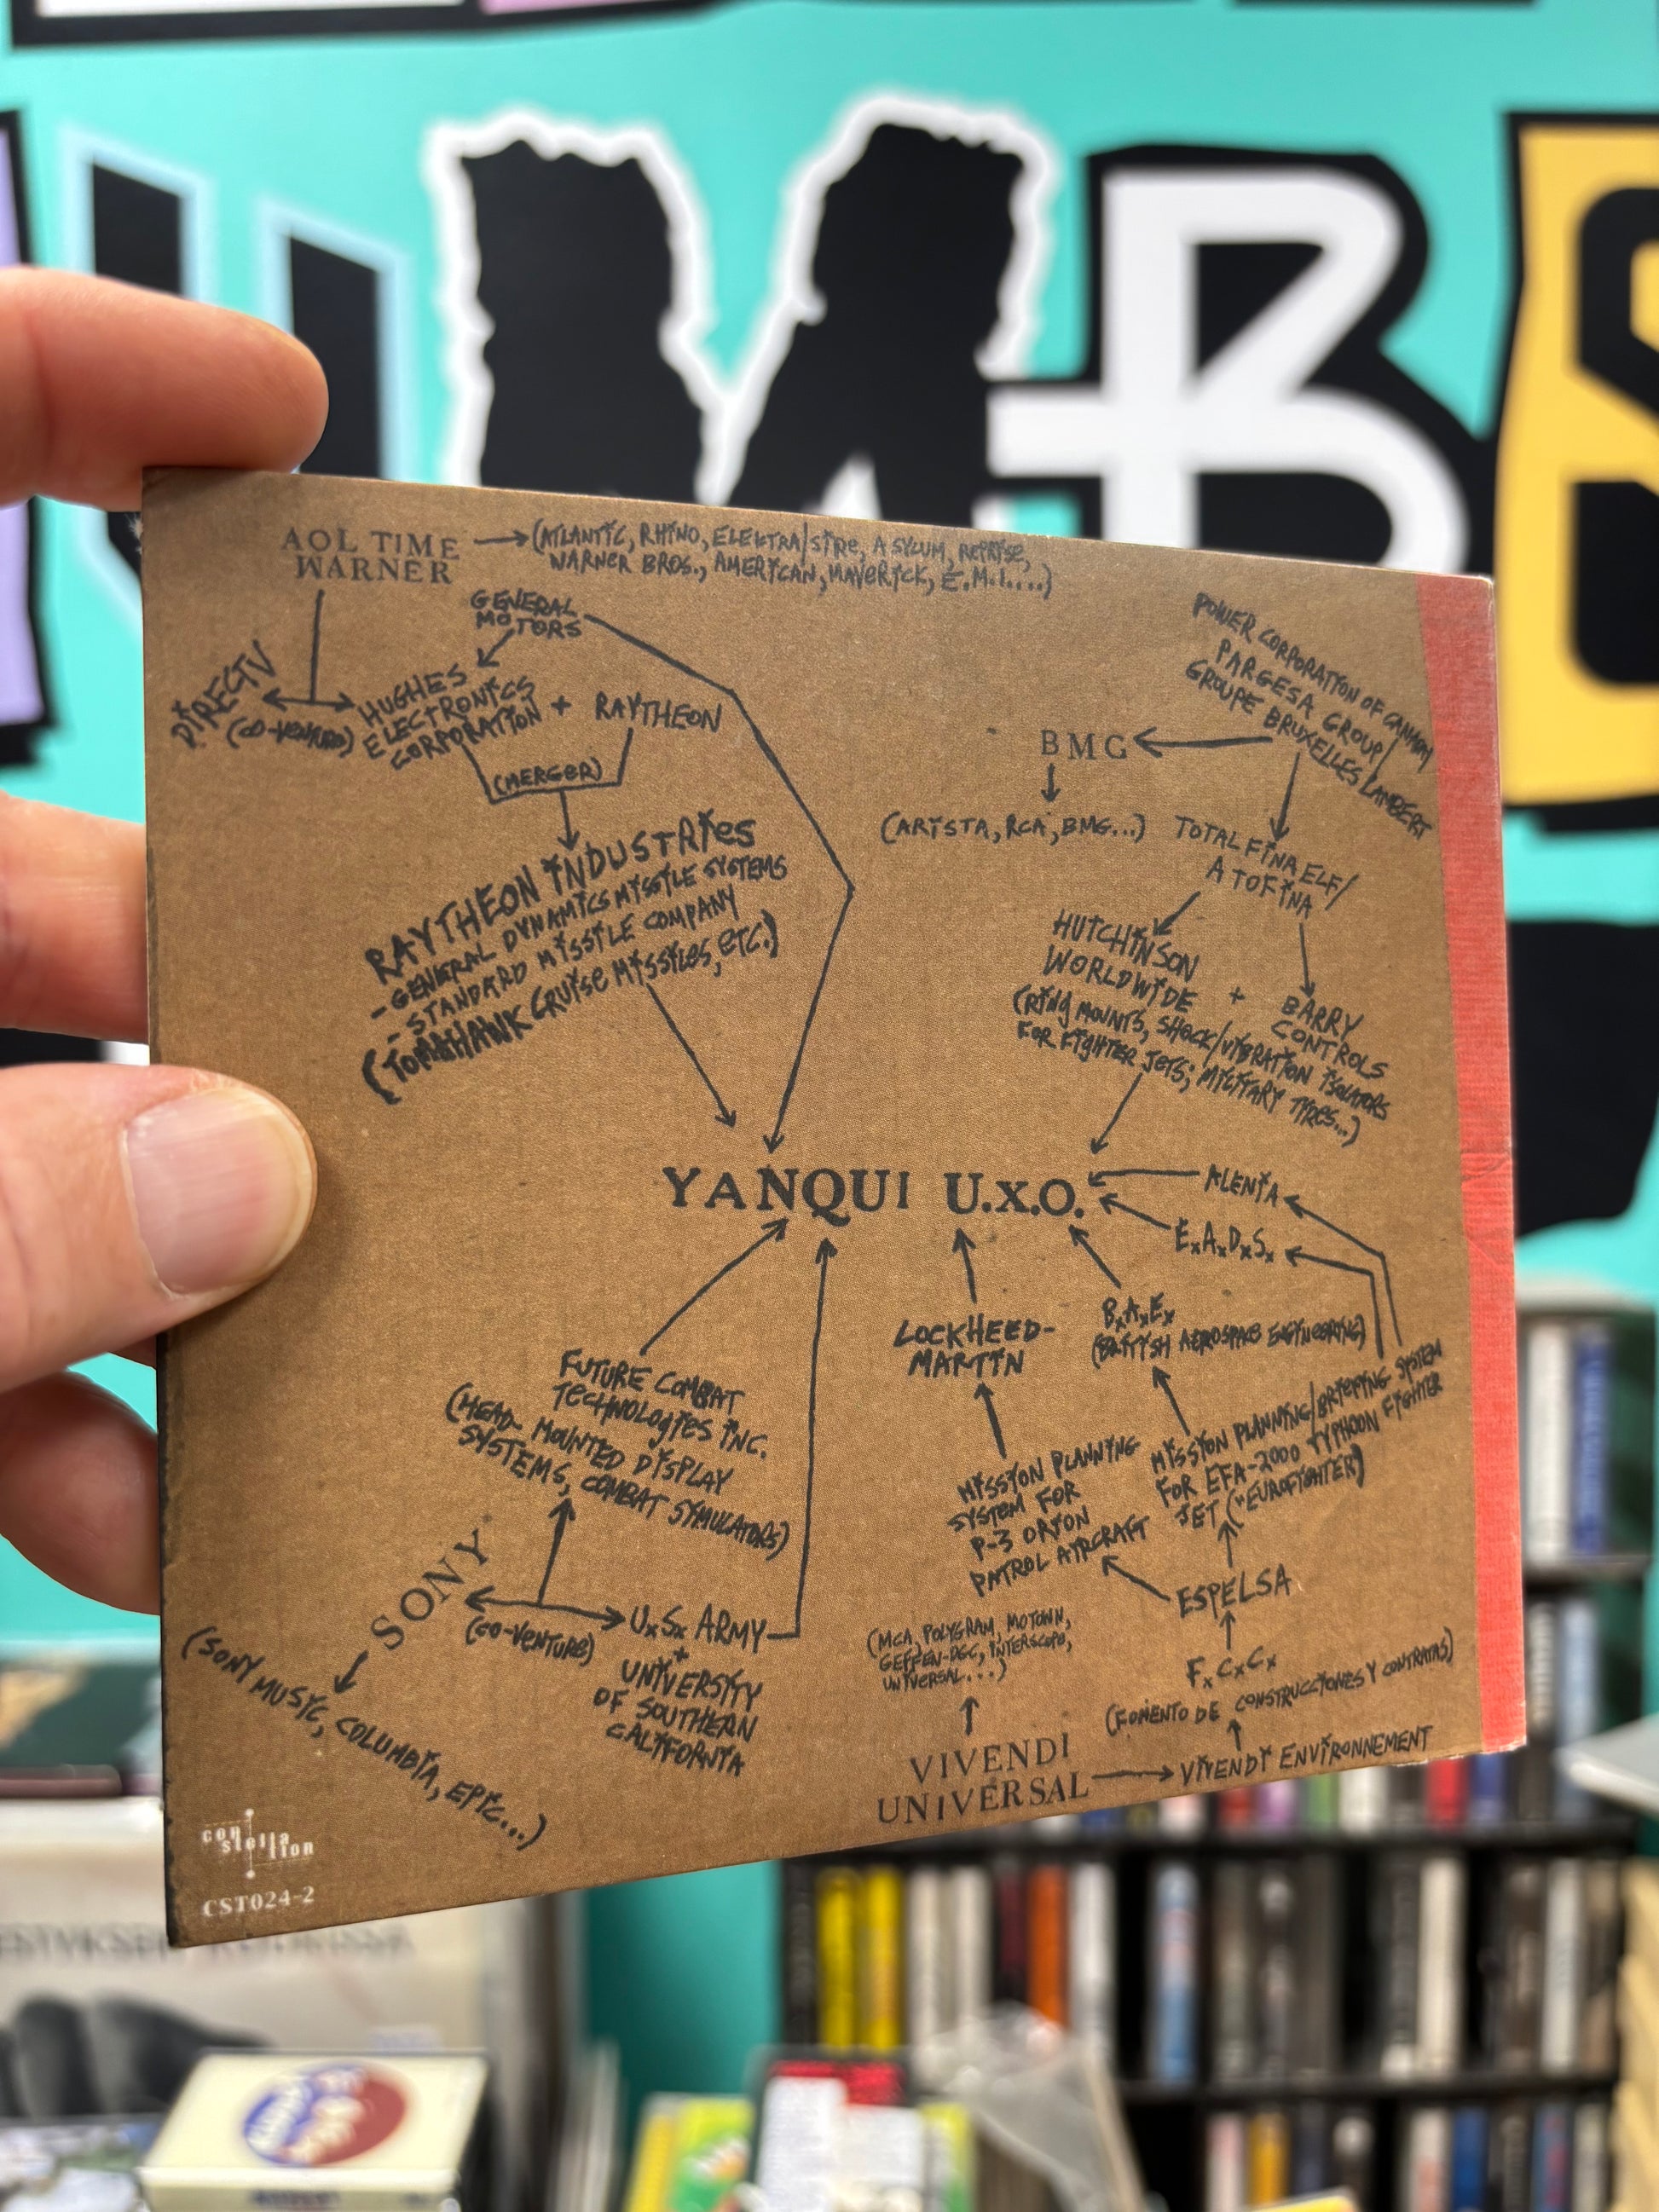 AOL TIME
WARNER
(ATLANTIC, RHINO, ELEKTRA/SIRE, ASYLUM, REPRISE,
WARNER BROS., AMERICAN, MAVERICK, E.M.I....)
GENERAL
MOTORS
DIRECTV
(CO-VENTURE)
HUGHES
ELECTRONICS
CORPORATION
+
RAYTHEON
(MERGER)
RAYTHEON INDUSTRIES
-GENERAL DYNAMICS MISSILE SYSTEMS
-STANDARD MISSILE COMPANY
(TOMAHAWK CRUISE MISSILES, ETC.)
POWER CORPORATION OF CANADA/
PARGESA GROUP/
GROUPE BRUXELLES LAMBERT
BMG
(ARISTA, RCA, BMG...)
TOTAL FINA ELF/
ATOFINA
HUTCHINSON
WORLDWIDE
+
BARRY
CONTROLS
(RING MOUNTS, SHOCK/VIBRATION ISOLATORS
FOR FIGHTER JETS; MILITARY TIRES...)
YANQUI U.X.O.
ALENIA
E.A.D.S.
B.A.E.
(BRITISH AEROSPACE ENGINEERING)
LOCKHEED-
MARTIN
FUTURE COMBAT
TECHNOLOGIES INC.
(HEAD-MOUNTED DISPLAY
SYSTEMS, COMBAT SYMULATORS)
MISSION PLANNING
SYSTEM FOR
P-3 ORION
PATROL AIRCRAFT
MISSION PLANNING/BRIEFING SYSTEM
FOR EFA-2000 TYPHOON FIGHTER
JET ("EUROFIGHTER)
ESPELSA
SONY
(CO-VENTURE)
U.S. ARMY
+
UNIVERSITY
OF SOUTHERN
CALIFORNIA
(SONY MUSIC, COLUMBIA, EPIC...)
(MCA, POLYGRAM, MOTOWN,
GEFFEN-DGC, INTERSCOPE,
UNIVERSAL...)
F.C.C.
(FOMENTO DE CONSTRUCCIONES Y CONTRATAS)
VIVENDI
UNIVERSAL
VIVENDI ENVIRONNEMENT
constellation
CST024-2